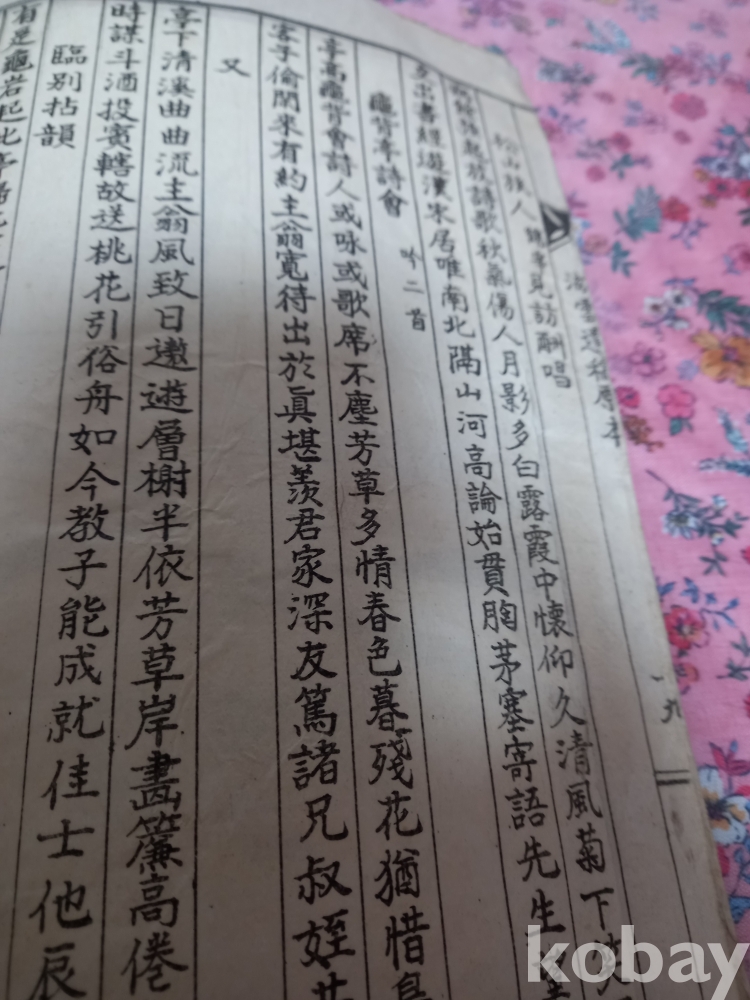 松山族人 見訪酬唱
詩歌秋氣傷人月影多白露霞中懷仰久清風菊下
出書經 漢宋居唯南北隔山河高論始貫胸茅塞寄語先生
龜背亭詩會 吟二首
亭高龜背會詩人或咏或歌席不塵芳草多情春色暮殘花猶惜鳥
客子偷閒來有約主翁寬待出於眞堪羨君家深友篤諸兄叔姪共
又
亭下清溪曲曲流主翁風致日遨遊層榭半依芳草岸畵簾高倦
時謀斗酒投賓轄故送桃花引俗舟如今教子能成就佳士他辰
臨別拈韻
有是龜岩起此亭
一九
kobay